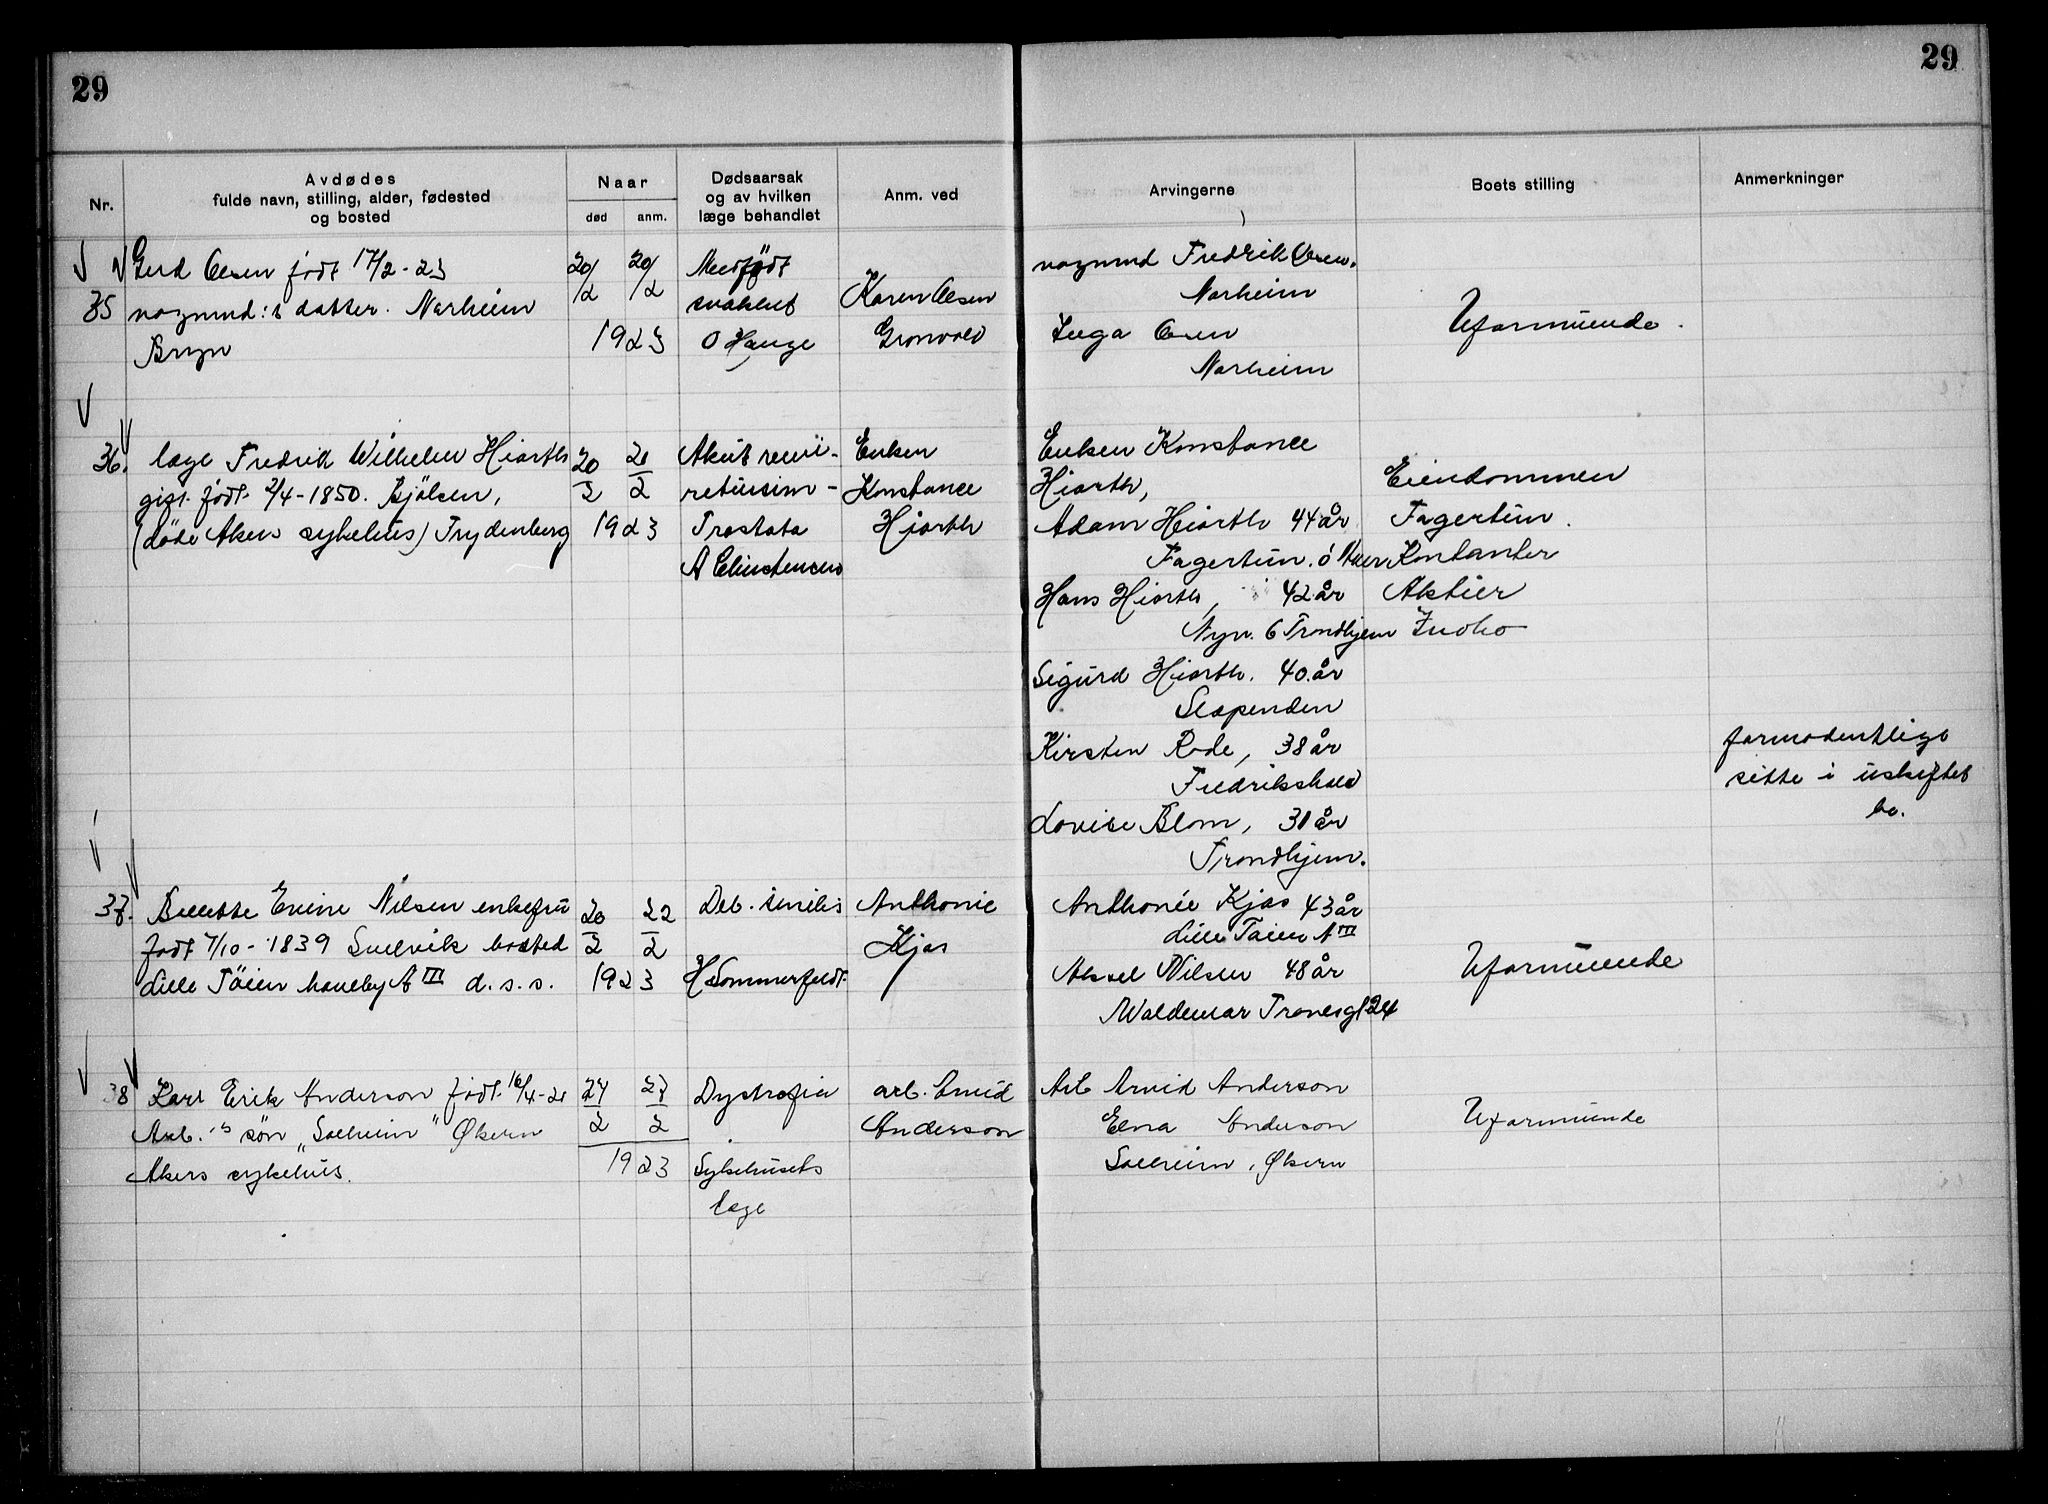 29
29
Nr.
Avdødes
fulde navn, stilling, alder, fødested
og bosted
Naar
død
anm.
Dødsaarsak
og av hvilken
læge behandlet
Anm. ved
Arvingerne
Boets stilling
Anmerkninger
35
Gerd Olsen född 17/2-23
vognmd:s datter. Norheim
Bryn
20/2
20/2
1923
Medfödt
svakhet
O Hauge
Karen Olsen
Grønvold
vognmd Fredrik Olsen.
Norheim
Inga Olsen
Norheim
Uformuende.
36.
læge Fredrik Wilhelm Hiorth
gift. födt. 2/4-1850. Bjölsen,
(döde Akers sykehus) Frydenberg
20/2
21/2
1923
Akut
Prostata
A Christensen
Enken
Konstance
Hjorth
Enken Konstance
Hiorth,
Adam Hiorth 44 år
Fagertun. Ö Aker
Hans Hiorth, 42 år
Nyn. 6 Trondhjem
Sigurd Hiorth. 40 år
Slependen
Kirsten Rode, 38 år
Fredrikshald
Lovise Blom, 31 år
Trondhjem.
Eiendommen
Fagertun.
Kontanter
Aktier
Indbo
formodentlige
sitte i uskiftet
bo.
37.
Nilsen enkefru
född 7/10-1839 Svelvik bosted
Lille Töien haveby A III d. s. s.
20/2
22/2
1923
Deb. senilis
H Sommerfeldt.
Anthonie
Kjos
Anthonie Kjos 43 år
Lille Töien A III
Aksel Nilsen 48 år
Waldemar Tranesgt 24
Uformuende
38
Karl Erik Anderson födt. 16/4-21
Arb.'s sön "Solheim" Økern
Akers sykehus.
24/2
27/2
1923
Dystrofia
Sykehusets
læge
arb. Arvid
Anderson
Arb Arvid Anderson
Elna Anderson
Solheim, Økern
Uformuende